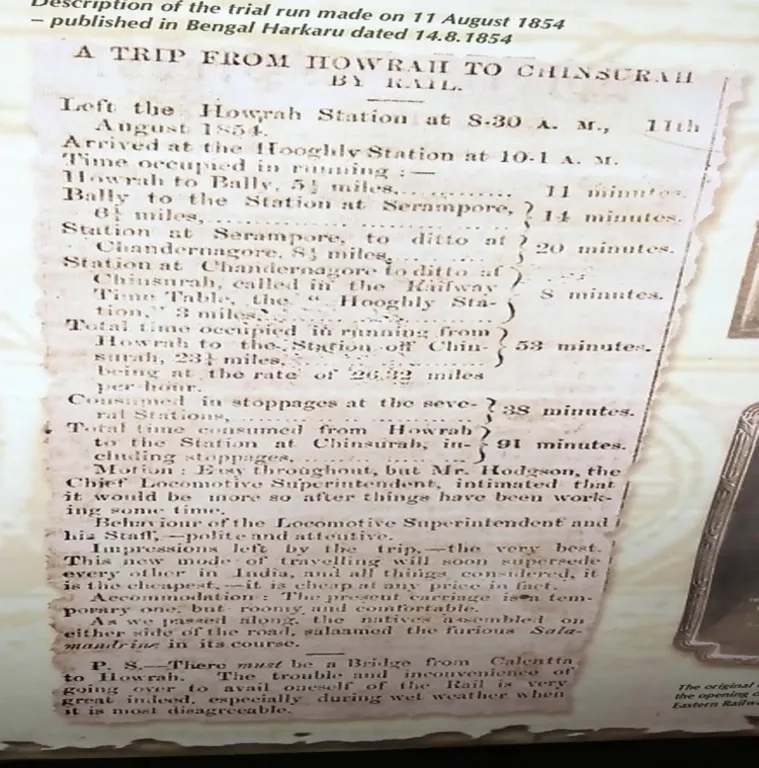 Description of the trial run made on 11 August 1854
– published in Bengal Harkaru dated 14.8.1854
A TRIP FROM HOWRAH TO CHINSURAH
BY RAIL.
Left the Howrah Station at 8-30 A. M., 11th
August 1854.
Arrived at the Hooghly Station at 10-1 A. M.
Time occupied in running :—
Howrah to Bally, 5½ miles,............ 11 minutes.
Bally to the Station at Serampore,
6½ miles,........................ 14 minutes.
Station at Serampore, to ditto at
Chandernagore, 8½ miles, 20 minutes.
Station at Chandernagore to ditto at
Chinsurah, called in the Railway
Time Table, the " Hooghly Sta-
tion," 3 miles,........ 8 minutes.
Total time occupied in running from
Howrah to the Station off Chin-
surah, 23½ miles, 53 minutes.
being at the rate of 26.32 miles
per hour.
Consumed in stoppages at the seve-
ral Stations,.................. 38 minutes.
Total time consumed from Howrah
to the Station at Chinsurah, in-
cluding stoppages........ 91 minutes.
Motion : Easy throughout, but Mr. Hodgson, the
Chief Locomotive Superintendent, intimated that
it would be more so after things have been work-
ing some time.
Behaviour of the Locomotive Superintendent and
his Staff,—polite and attentive.
Impressions left by the trip,—the very best.
This new mode of travelling will soon supersede
every other in India, and all things considered, it
is the cheapest,—it is cheap at any price in fact.
Accommodation : The present carriage is a tem-
porary one, but roomy and comfortable.
As we passed along, the natives assembled on
either side of the road, salaamed the furious Sala-
mandrine in its course.
P. S.—There must be a Bridge from Calcutta
to Howrah. The trouble and inconvenience of
going over to avail oneself of the Rail is very
great indeed, especially during wet weather when
it is most disagreeable.
The original
the opening o
Eastern Railw